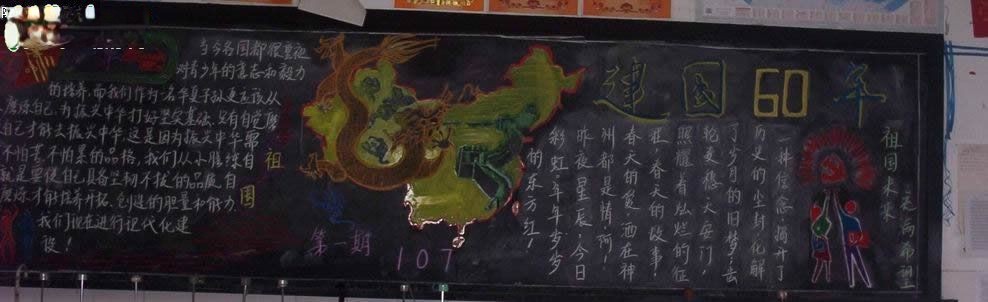 当今各国都很重视
对青少年的意志和毅力
的培养,而我们作为华夏子孙更应该从
磨练自己,为振兴中华打好坚实基础,只有自觉磨
自己才能去振兴中华,这是因为振兴中华需
不怕苦不怕累的品格,我们从小磨练自
就是要使自己具备坚韧不拔的品质,自
磨练才能培养开拓、创造的胆量和能力.
我们现在进行现代化建
设!
祖
国
第一期
107
建国60年
一种信念揭开了
历史的尘封,化解
了岁月的旧梦;去
抢更稳,天安门,
照耀着灿烂的征
程,春天的故事
春天的爱,洒在神
州都是情,啊!
昨夜星辰,今日
彩虹,年年岁岁
的东方红!
祖国未来
是
希望